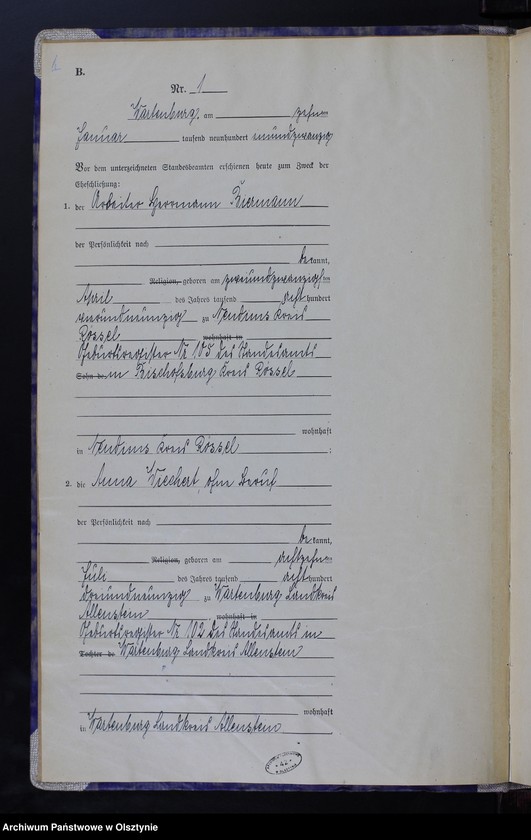 B.
Nr. 1
Wartenburg, am zehn
Januar tausend neunhundert einundzwanzig
Vor dem unterzeichneten Standesbeamten erschienen heute zum Zweck der
Eheschließung:
1. der Arbeiter Herrmann Biermann
der Persönlichkeit nach
be kannt,
Religion, geboren am zweiundzwanzigsten
April des Jahres tausend acht hundert
neunundneunzig zu Kreis
Rössel wohnhaft in
Geburtsregister Nr 105 des Standesamts
Sohn de in Bischofsburg Kreis Rössel
wohnhaft
in Kreis Rössel ;
2. die Anna Wiechert, ohne Beruf
der Persönlichkeit nach
be kannt,
Religion, geboren am achtzehn
Juli des Jahres tausend acht hundert
dreiundneunzig zu Wartenburg Landkreis
Allenstein wohnhaft in
Geburtsregister Nr 102 des Standesamts in
Tochter de Wartenburg Landkreis Allenstein
wohnhaft
in Wartenburg Landkreis Allenstein
Archiwum Państwowe w Olsztynie